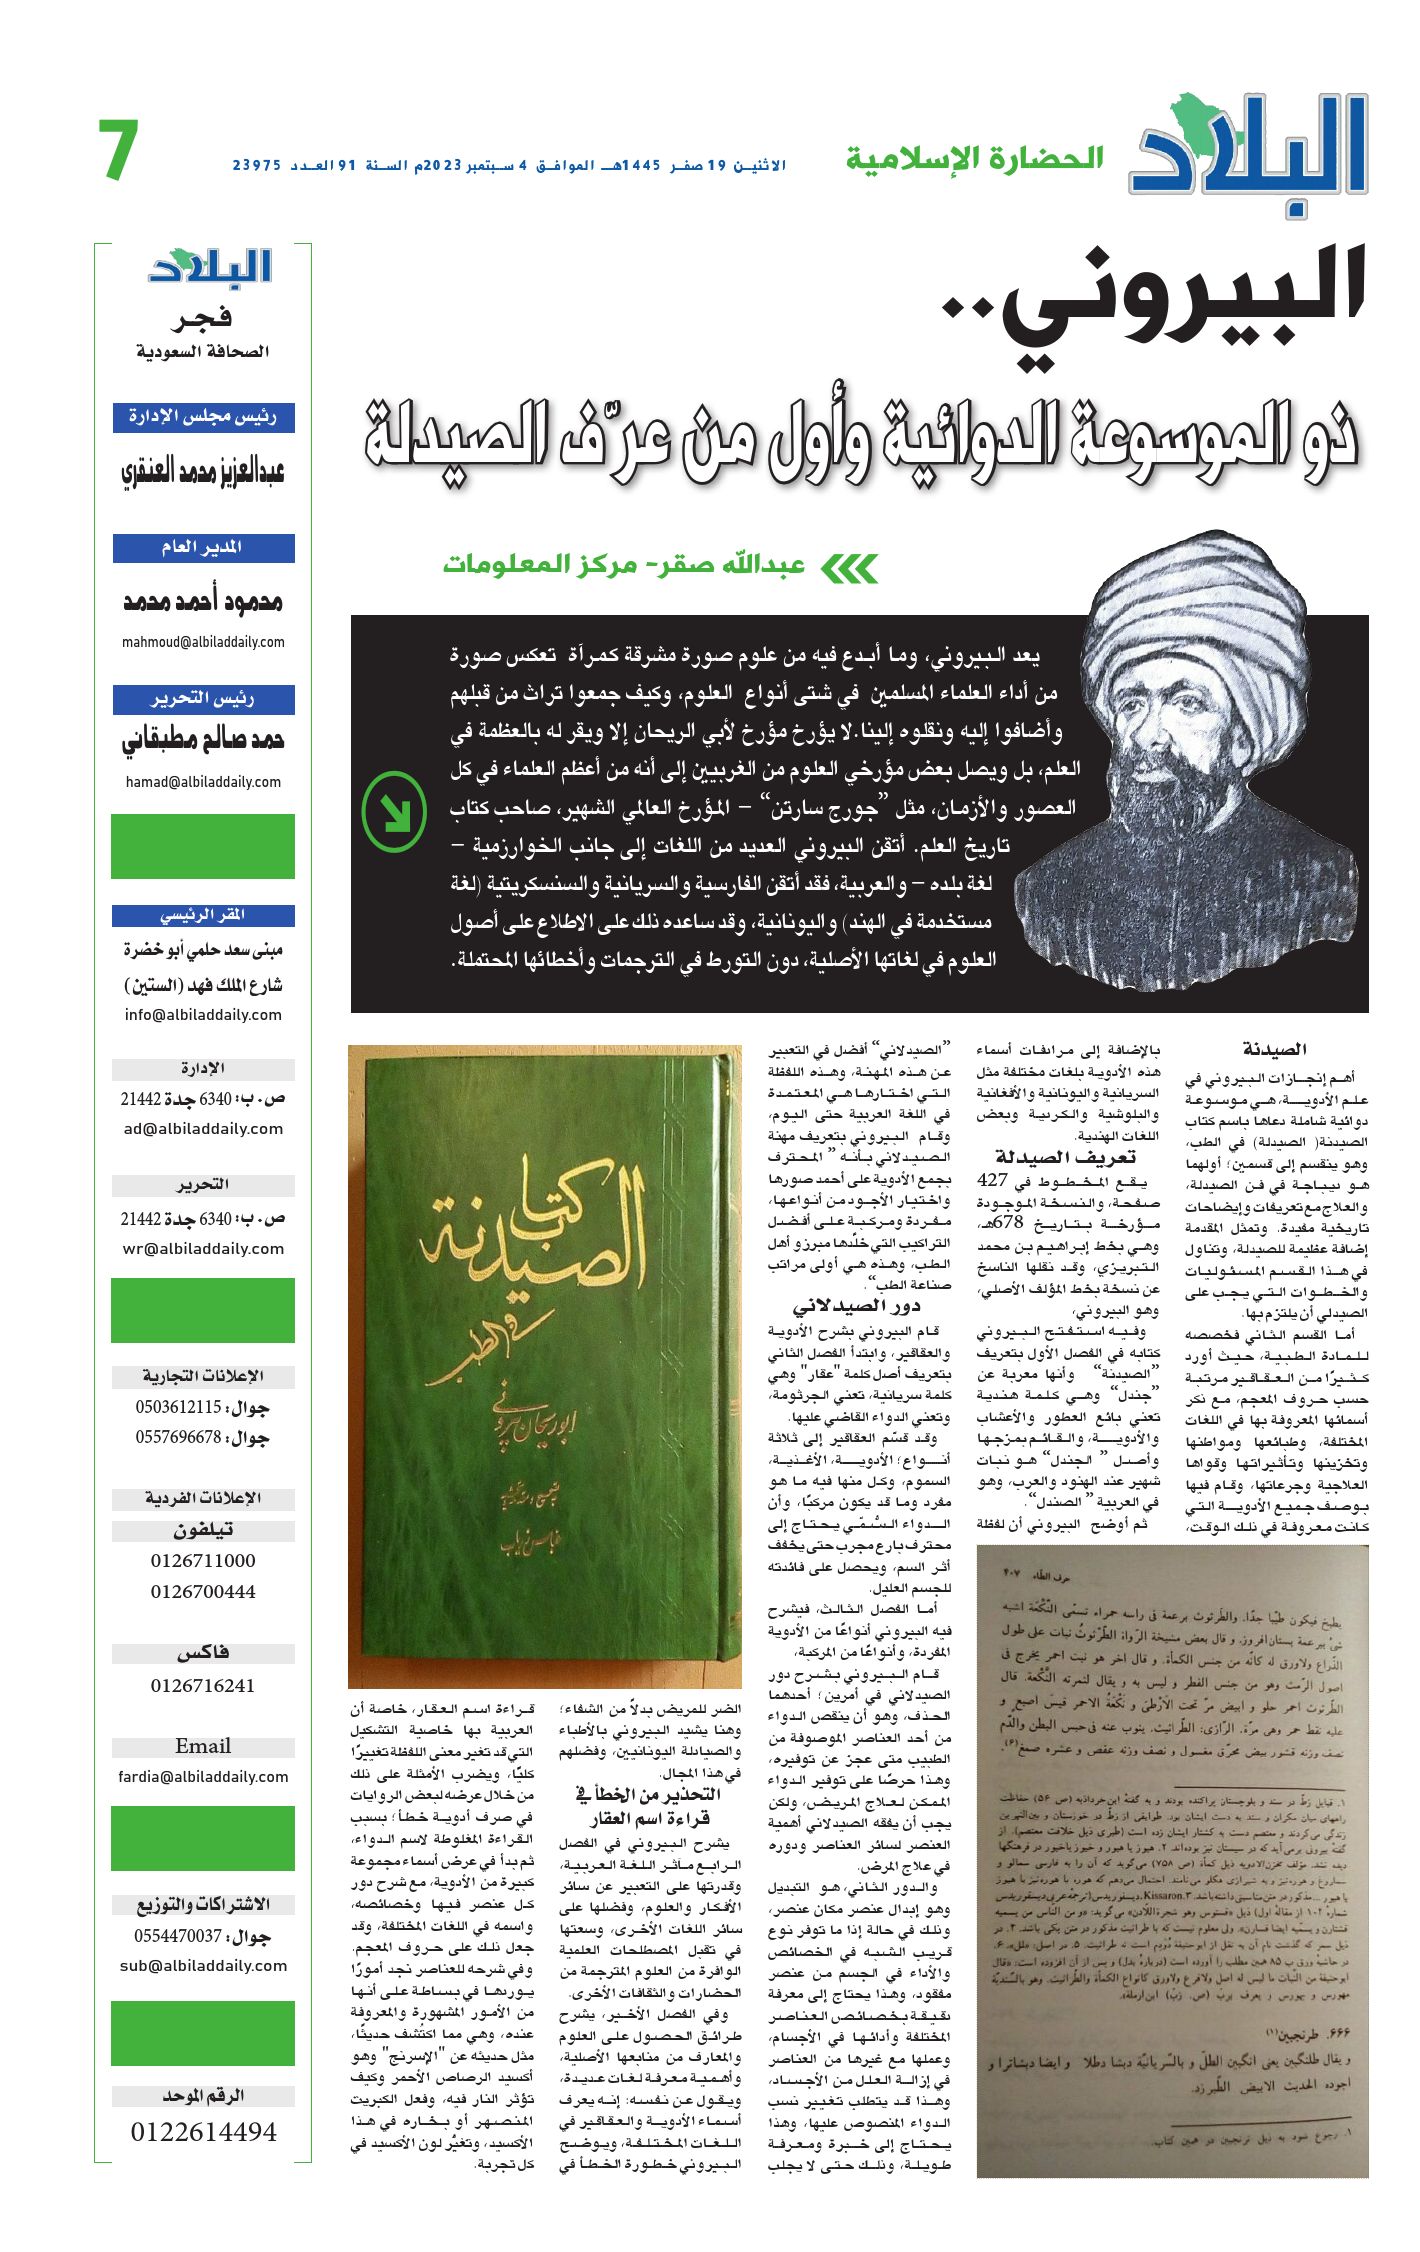 البلاد
الحضارة الإسلامية
الاثنين 19 صفر 1445هـ الموافق 4 سبتمبر 2023م السنة 91 العدد 23975
7
البيروني..
ذو الموسوعة الدوائية وأول من عرّف الصيدلة
عبدالله صقر- مركز المعلومات
يعد البيروني، وما أبدع فيه من علوم صورة مشرقة كمرآة تعكس صورة
من أداء العلماء المسلمين في شتى أنواع العلوم، وكيف جمعوا تراث من قبلهم
وأضافوا إليه ونقلوه إلينا.لا يؤرخ مؤرخ لأبي الريحان إلا ويقر له بالعظمة في
العلم، بل ويصل بعض مؤرخي العلوم من الغربيين إلى أنه من أعظم العلماء في كل
العصور والأزمان، مثل ”جورج سارتن“ – المؤرخ العالمي الشهير، صاحب كتاب
تاريخ العلم. أتقن البيروني العديد من اللغات إلى جانب الخوارزمية –
لغة بلده – والعربية، فقد أتقن الفارسية والسريانية والسنسكريتية (لغة
مستخدمة في الهند) واليونانية، وقد ساعده ذلك على الاطلاع على أصول
العلوم في لغاتها الأصلية، دون التورط في الترجمات وأخطائها المحتملة.
الصيدنة
أهم إنجازات البيروني في
علم الأدوية، هي موسوعة
دوائية شاملة دعاها باسم كتاب
الصيدنة( الصيدلة) في الطب،
وهو ينقسم إلى قسمين؛ أولهما
هو ديباجة في فن الصيدلة،
والعلاج مع تعريفات وإيضاحات
تاريخية مفيدة. وتمثل المقدمة
إضافة عظيمة للصيدلة، وتناول
في هذا القسم المسئوليات
والخطوات التي يجب على
الصيدلي أن يلتزم بها.
أما القسم الثاني فخصصه
للمادة الطبية، حيث أورد
كثيرًا من العقاقير مرتبة
حسب حروف المعجم، مع ذكر
أسمائها المعروفة بها في اللغات
المختلفة، وطبائعها ومواطنها
وتخزينها وتأثيراتها وقواها
العلاجية وجرعاتها، وقام فيها
بوصف جميع الأدوية التي
كانت معروفة في ذلك الوقت،
بالإضافة إلى مرادفات أسماء
هذه الأدوية بلغات مختلفة مثل
السريانية واليونانية والأفغانية
والبلوشية والكردية وبعض
اللغات الهندية.
تعريف الصيدلة
يقع المخطوط في 427
صفحة، والنسخة الموجودة
مؤرخة بتاريخ 678هـ،
وهي بخط إبراهيم بن محمد
التبريزي، وقد نقلها الناسخ
عن نسخة بخط المؤلف الأصلي،
وهو البيروني،
وفيه استفتح البيروني
كتابه في الفصل الأول بتعريف
”الصيدنة“ وأنها معربة عن
”جندل“ وهي كلمة هندية
تعني بائع العطور والأعشاب
والأدوية، والقائم بمزجها
وأصل ” الجندل“ هو نبات
شهير عند الهنود والعرب، وهو
في العربية ” الصندل“.
ثم أوضح البيروني أن لفظة
”الصيدلاني“ أفضل في التعبير
عن هذه المهنة، وهذه اللفظة
التي اختارها هي المعتمدة
في اللغة العربية حتى اليوم،
وقام البيروني بتعريف مهنة
الصيدلاني بأنه ” المحترف
بجمع الأدوية على أحمد صورها
واختيار الأجود من أنواعها،
مفردة ومركبة على أفضل
التراكيب التي خلّدها مبرزو أهل
الطب، وهذه هي أولى مراتب
صناعة الطب“.
دور الصيدلاني
قام البيروني بشرح الأدوية
والعقاقير، وابتدأ الفصل الثاني
بتعريف أصل كلمة "عقار" وهي
كلمة سريانية، تعني الجرثومة،
وتعني الدواء القاضي عليها.
وقد قسّم العقاقير إلى ثلاثة
أنواع؛ الأدوية، الأغذية،
السموم، وكل منها فيه ما هو
مفرد وما قد يكون مركبًا، وأن
الدواء السُّمّي يحتاج إلى
محترف بارع مجرب حتى يخفف
أثر السم، ويحصل على فائدته
للجسم العليل.
أما الفصل الثالث، فيشرح
فيه البيروني أنواعًا من الأدوية
المفردة، وأنواعًا من المركبة،
قام البيروني بشرح دور
الصيدلاني في أمرين؛ أحدهما
الحذف، وهو أن ينقص الدواء
من أحد العناصر الموصوفة من
الطبيب متى عجز عن توفيره،
وهذا حرصًا على توفير الدواء
الممكن لعلاج المريض، ولكن
يجب أن يفقه الصيدلاني أهمية
العنصر لسائر العناصر ودوره
في علاج المرض.
والدور الثاني، هو التبديل
وهو إبدال عنصر مكان عنصر،
وذلك في حالة إذا ما توفر نوع
قريب الشبه في الخصائص
والأداء في الجسم من عنصر
مفقود، وهذا يحتاج إلى معرفة
دقيقة بخصائص العناصر
المختلفة وأدائها في الأجسام،
وعملها مع غيرها من العناصر
في إزالة العلل من الأجساد،
وهذا قد يتطلب تغيير نسب
الدواء المنصوص عليها، وهذا
يحتاج إلى خبرة ومعرفة
طويلة، وذلك حتى لا يجلب
الضر للمريض بدلاً من الشفاء؛
وهنا يشيد البيروني بالأطباء
والصيادلة اليونانيين، وفضلهم
في هذا المجال.
التحذير من الخطأ في
قراءة اسم العقار
يشرح البيروني في الفصل
الرابع مآثر اللغة العربية،
وقدرتها على التعبير عن سائر
الأفكار والعلوم، وفضلها على
سائر اللغات الأخرى، وسعتها
في تقبل المصطلحات العلمية
الوافرة من العلوم المترجمة من
الحضارات والثقافات الأخرى.
وفي الفصل الأخير، يشرح
طرائق الحصول على العلوم
والمعارف من منابعها الأصلية،
وأهمية معرفة لغات عديدة،
ويقول عن نفسه: إنه يعرف
أسماء الأدوية والعقاقير في
اللغات المختلفة، ويوضح
البيروني خطورة الخطأ في
قراءة اسم العقار، خاصة أن
العربية بها خاصية التشكيل
التي قد تغير معنى اللفظة تغييرًا
كليًا، ويضرب الأمثلة على ذلك
من خلال عرضه لبعض الروايات
في صرف أدوية خطأ؛ بسبب
القراءة المغلوطة لاسم الدواء،
ثم بدأ في عرض أسماء مجموعة
كبيرة من الأدوية، مع شرح دور
كل عنصر فيها وخصائصه،
واسمه في اللغات المختلفة، وقد
جعل ذلك على حروف المعجم.
وفي شرحه للعناصر نجد أمورًا
يوردها في بساطة على أنها
من الأمور المشهورة والمعروفة
عنده، وهي مما اكتُشف حديثًا،
مثل حديثه عن "الإسرنج" وهو
أكسيد الرصاص الأحمر وكيف
تؤثر النار فيه، وفعل الكبريت
المنصهر أو بخاره في هذا
الأكسيد، وتغيُّر لون الأكسيد في
كل تجربة.
كتاب
الصيدنة
في طب
ابوريحان بيرونی
عباس زریاب
حرف الطّاء ۴۰۷
۶۶۶. طرنجبین(۱)
۱. رجوع شود به ذیل ترنجبین در همین کتاب.
البلاد
فجر
الصحافة السعودية
رئيس مجلس الإدارة
عبدالعزيز محمد العنقري
المدير العام
محمود أحمد محمد
mahmoud@albiladdaily.com
رئيس التحرير
حمد صالح مطبقاني
hamad@albiladdaily.com
المقر الرئيسي
مبنى سعد حلمي أبو خضرة
شارع الملك فهد (الستين)
info@albiladdaily.com
الإدارة
ص.ب: 6340 جدة 21442
ad@albiladdaily.com
التحرير
ص.ب: 6340 جدة 21442
wr@albiladdaily.com
الإعلانات التجارية
جوال: 0503612115
جوال: 0557696678
الإعلانات الفردية
تيلفون
0126711000
0126700444
فاكس
0126716241
Email
fardia@albiladdaily.com
الاشتراكات والتوزيع
جوال: 0554470037
sub@albiladdaily.com
الرقم الموحد
0122614494